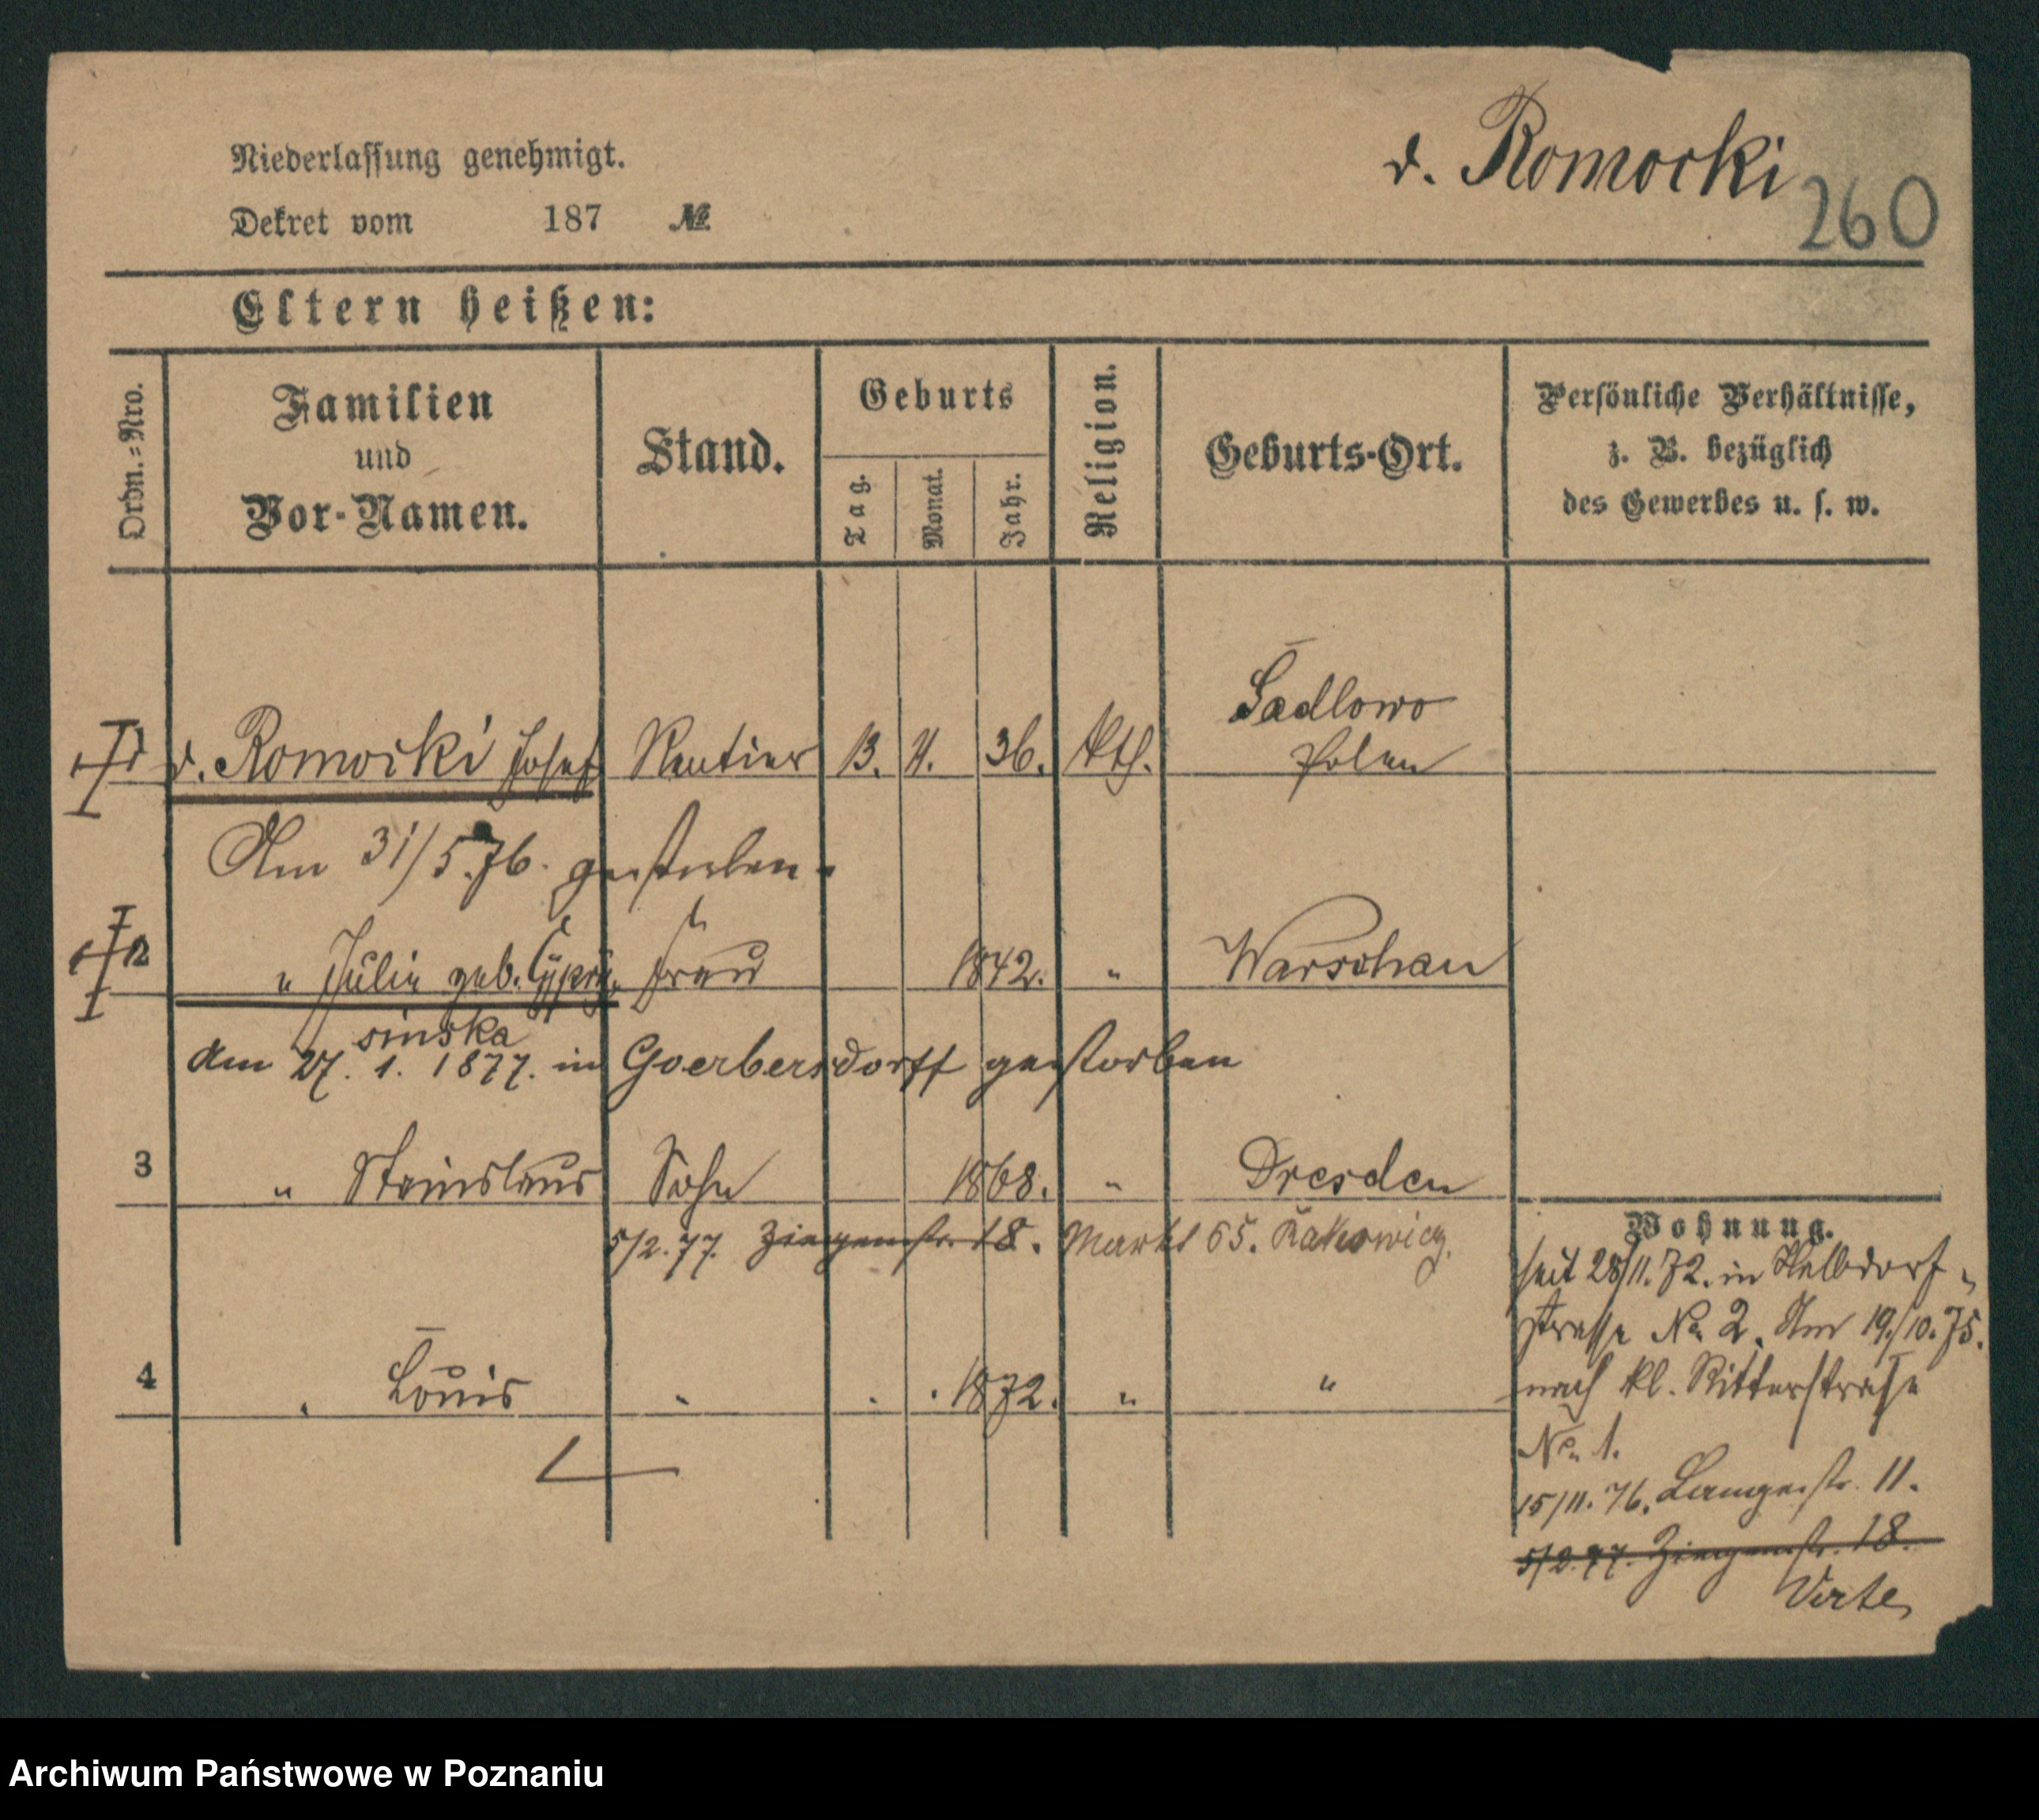 v. Romocki
260
Niederlassung genehmigt.
Dekret vom 187 №
Eltern heißen:
Ordn.-Nro.
Familien
und
Vor-Namen.
Stand.
Geburts
Tag.
Monat.
Jahr.
Religion.
Geburts-Ort.
Persönliche Verhältnisse,
z. B. bezüglich
des Gewerbes u. s. w.
Sadlowo
1 v. Romocki Josef Rentier 13. 4. 36. kth. Polen
Am 31/5.76. gestorben.
2 " Julie geb. Cypry- Frau 1842. " Warschau
sinska
Am 27. 1. 1877. in Goerbersdorff gestorben
3 " Stanislaus Sohn 1868. " Dresden
5/2. 77. Ziegenstr. 18. Markt 65. Rakowicz.
4 " Louis " " " 1872. " "
Wohnung.
seit 28/11. 72. in Halbdorf-
strasse No 2. Am 19/10. 75.
nach kl. Ritterstraße
No 1.
15/11. 76. Langestr. 11.
5/2. 77. Ziegenstr. 18.
Verte
Archiwum Państwowe w Poznaniu